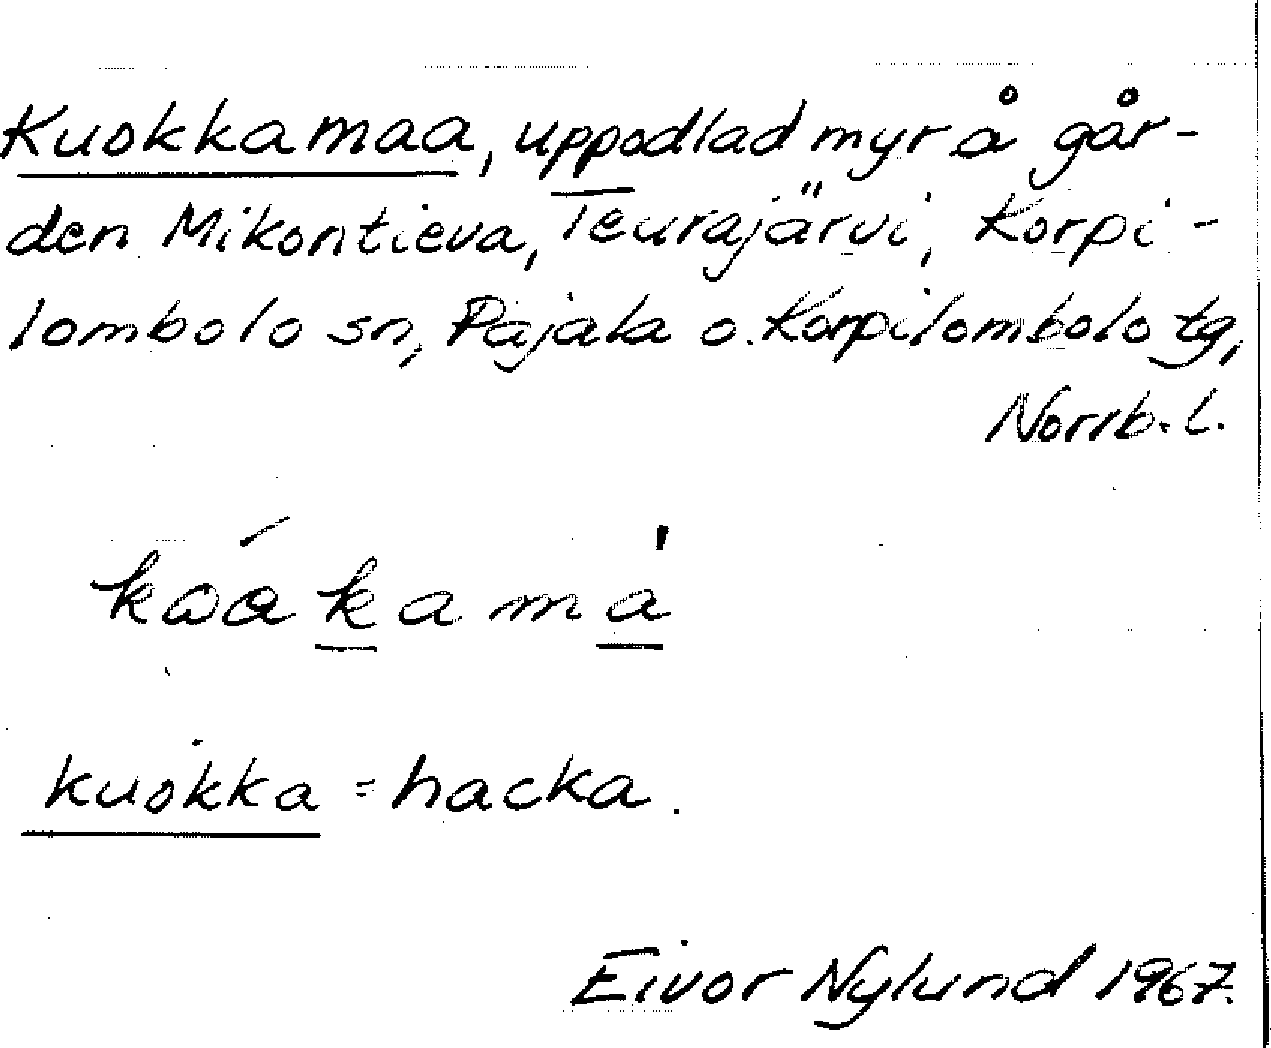 Kuokkamaa, uppodlad myr å går-
den Mikontieva, Teurajärvi, Korpi-
lombolo sn, Pajala o. Korpilombolo tg,
Norrb. l.
kωάkamà
kuokka = hacka.
Eivor Nylund 1967.